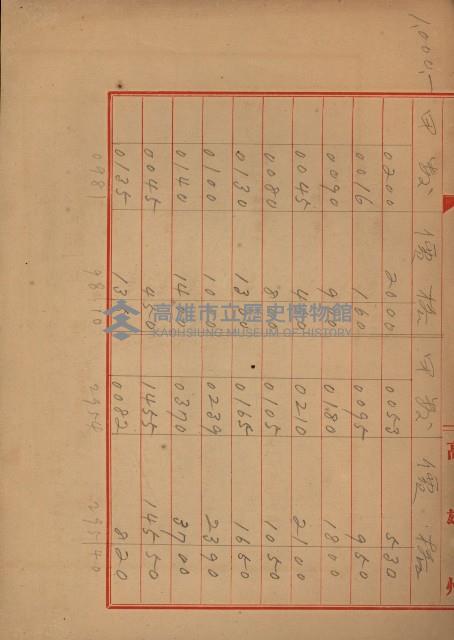 1,000,〃
甲数 價格 甲数 價格
0200 2000 0053 530
0016 160 0095 950
0090 900 0180 1800
0045 450 0210 2100
0080 800 0105 1050
0130 1300 0165 1650
0100 1000 0239 2390
0140 1400 0370 3700
0045 450 1455 14550
0135 1350 0082 820
0981 9810 2954 29540
高雄州
高雄市立歷史博物館
KAOHSIUNG MUSEUM OF HISTORY